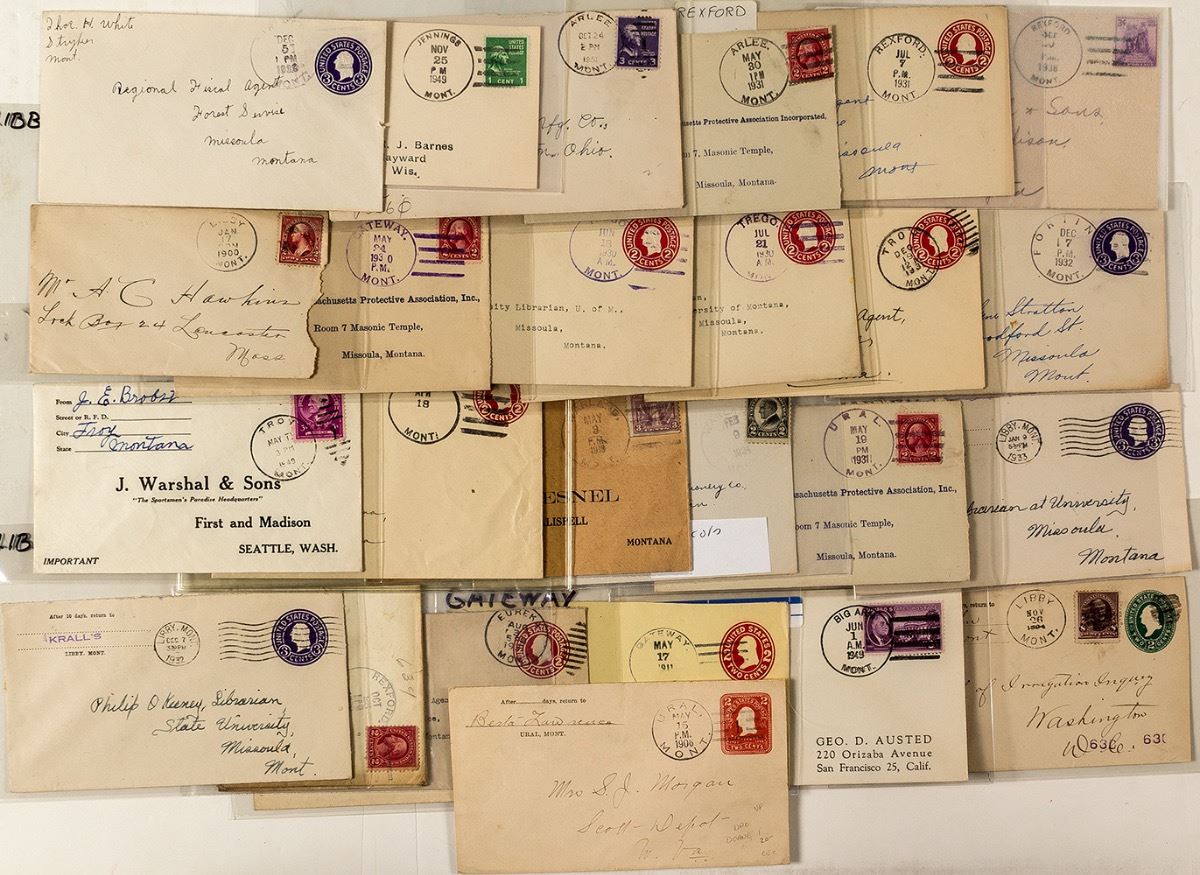 Thos. H. White
Stryker
Mont.
DEC
5
1 PM
MONT.
UNITED STATES POSTAGE
3 CENTS 3
Regional Fiscal Agent
Forest Service
Missoula
Montana
JENNINGS
NOV
25
P M
1949
MONT.
1 CENT 1
J. J. Barnes
ayward
Wis.
ARLEE
OCT 24
2 PM
MONT.
3 CENTS 3
Mfg. Co.,
Ohio.
REXFORD
ARLEE.
MAY
30
1PM
1931
MONT.
usetts Protective Association Incorporated,
m 7, Masonic Temple,
Missoula, Montana.
REXFORD,
JUL
7
P.M.
1931
MONT.
UNITED STATES POSTAGE
2 CENTS 2
gent
Missoula
Mont
REXFORD
P.M.
1938
MONT.
3¢
& Sons,
dison.
LIBB
LIBBY
JAN
17
1900
MONT.
Mr A C Hawkins
Lock Box 24 Lancaster
Mass
GATEWAY.
MAY
24
1930
P.M.
MONT.
ssachusetts Protective Association, Inc.,
Room 7 Masonic Temple,
Missoula, Montana.
JUN
18
1930
A.M.
MONT.
UNITED STATES POSTAGE
2 CENTS 2
ity Librarian, U. of M.,
Missoula,
Montana.
TREGO
JUL
21
1930
A.M.
MONT.
UNITED STATES POSTAGE
2 CENTS 2
an,
ersity of Montana,
Missoula,
Montana.
TROY
DEC
MONT.
2 CENTS 2
Agent,
FORTINE
DEC
17
P.M.
1932
MONT.
UNITED STATES POSTAGE
3 CENTS 3
Stratton
odford St.
Missoula
Mont.
From J. E. Brobst
Street or R. F. D.
City Troy
State Montana
TROY
MAY
1940
MONT.
J. Warshal & Sons
"The Sportsmen's Paradise Headquarters"
First and Madison
SEATTLE, WASH.
IMPORTANT
APR
18
MONT.
CENTS 2
MAY
9
P.M.
1919
ESNEL
LISPELL
MONTANA
FEB
9
onery Co.,
an.
cols
URAL.
MAY
19
PM
1931
MONT.
ssachusetts Protective Association, Inc.,
oom 7 Masonic Temple,
Missoula, Montana.
LIBBY, MONT.
JAN 9
1933
UNITED STATES POSTAGE
3 CENTS 3
brarian at University,
Missoula,
Montana
LIBB
After 10 days, return to
KRALL'S
LIBBY, MONT.
LIBBY, MONT.
DEC 7
1932
UNITED STATES POSTAGE
3 CENTS 3
Philip O Keeney, Librarian
State University,
Missoula,
Mont.
REXFORD
OCT
634
2
GATEWAY
EUREKA
AUG
MONT
2 CENTS 2
Agen
ce,
ontan
GATEWAY.
MAY
17
1911
UNITED STATES POSTAGE
TWO CENTS
BIG ARM
JUN
1
A.M.
1949
MONT.
GEO. D. AUSTED
220 Orizaba Avenue
San Francisco 25, Calif.
return to
ont
LIBBY
NOV
26
1894
MONT.
2
of Irrigation Inquiry
Washington
D.C.
63(
63(
After days, return to
Berta Lawrence
URAL, MONT.
URAL,
MAY
16
P.M.
1906
MONT.
2 2
TWO CENTS
Mrs S. J. Morgan
Scott-Depot
W. Va
DOANE 1
20